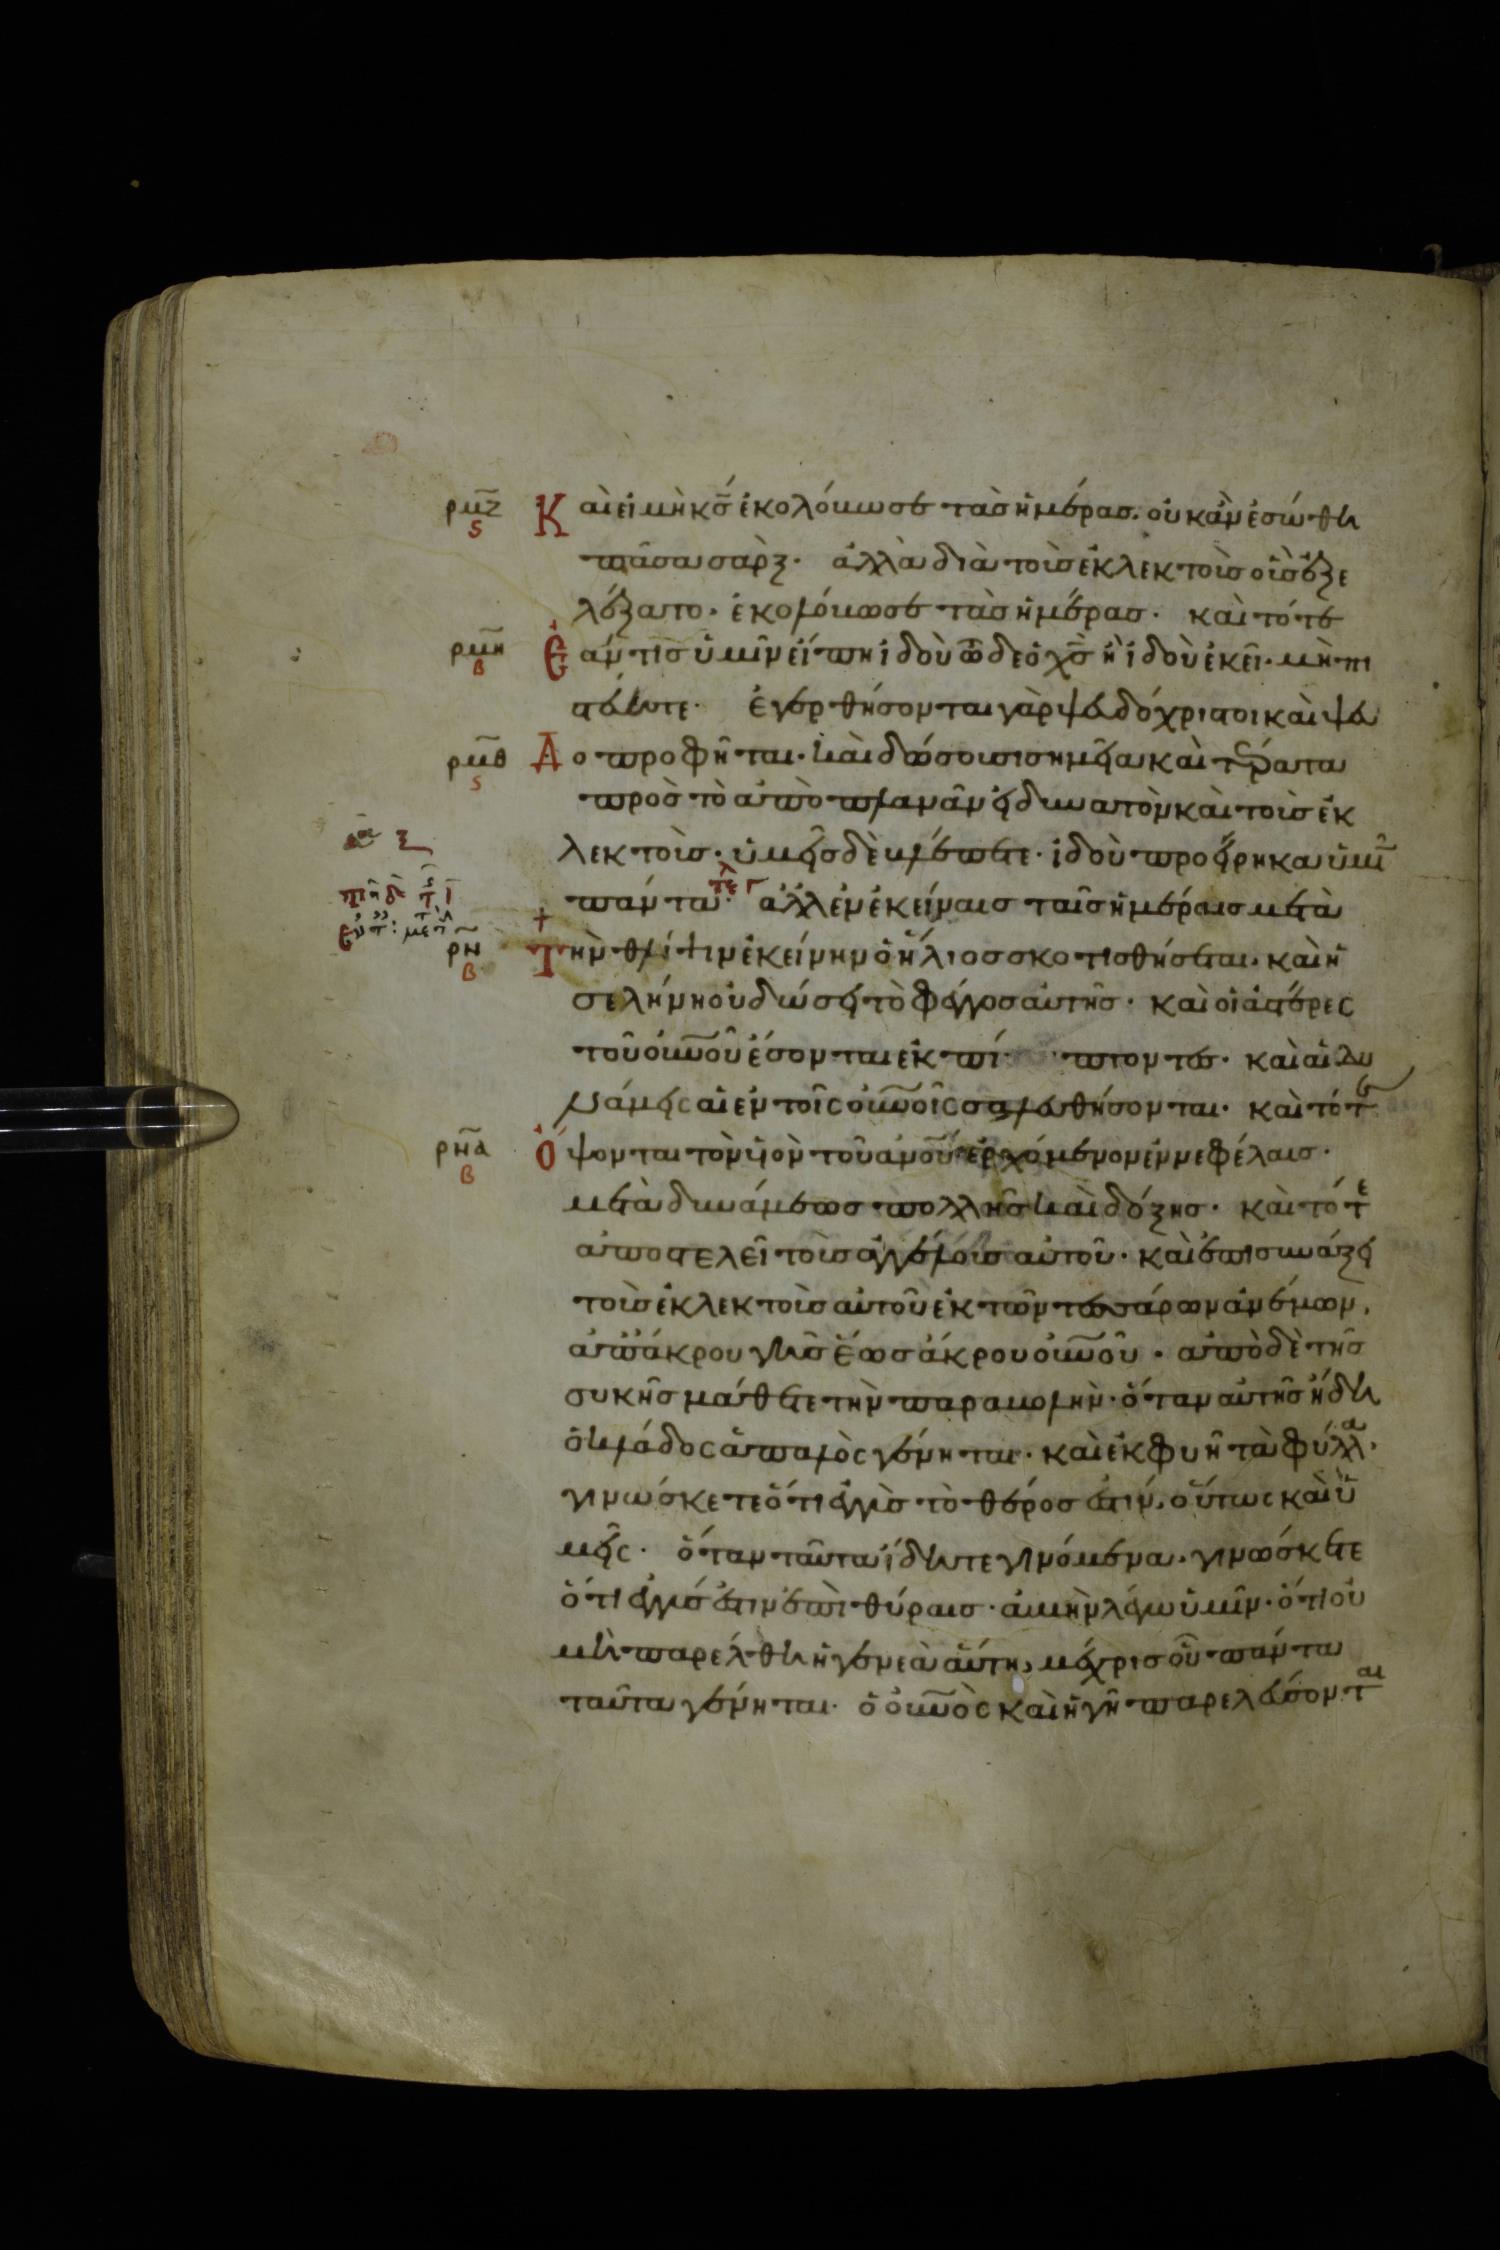 ρμζ ϛ Καὶ εἰ μὴ κς ἐκολόβωσε τὰσ ἡμέρασ. οὐκ ἂν ἐσώθη
πᾶσα σὰρξ· ἀλλὰ διὰ τοὺσ ἐκλεκτοὺσ οὓσ ἐξε
λέξατο· ἐκολόβωσε τὰσ ἡμέρασ· καὶ τότε
ρμη β Ἐάν τισ ὑμῖν εἴπη ἰδοὺ ὧδε ὁ χς ἢ ἰδοὺ ἐκεῖ· μὴ πι
στεύητε· ἐγερθήσονται γὰρ ψευδόχριστοι καὶ ψευ
ρμθ ϛ Δοπροφῆται· καὶ δώσουσι σημεῖα καὶ τέρατα
πρὸσ τὸ ἀποπλανᾶν εἰ δυνατὸν καὶ τοὺσ ἐκ
λεκτούσ· ὑμεῖσ δὲ βλέπετε· ἰδοὺ προείρηκα ὑμῖ
πάντα· ἀλλ ἐν ἐκείναισ ταῖσ ἡμέραισ μετὰ
ρν β Τὴν θλίψιν ἐκείνην ὁ ἥλιοσ σκοτισθήσεται· καὶ ἡ
σελήνη οὐ δώσει τὸ φέγγοσ αὐτῆσ· καὶ οἱ ἀστέρες
τοῦ οὐνοῦ ἔσονται ἐκπί πτοντεσ· καὶ αἱ δυ
νάμεις αἱ ἐν τοῖς οὐνοῖς σαλευθήσονται· καὶ τότε
ρνα β Ὄψονται τὸν υἱὸν τοῦ ἀνοῦ ἐρχόμενον ἐν νεφέλαισ·
μετὰ δυνάμεωσ πολλῆσ καὶ δόξησ· καὶ τότε
ἀποστελεῖ τοὺσ ἀγγέλουσ αὐτοῦ· καὶ ἐπισυνάξει
τοὺσ ἐκλεκτοὺσ αὐτοῦ ἐκ τῶν τεσσάρων ἀνέμων,
ἀπ ἄκρου γῆσ ἕωσ ἄκρου οὐνοῦ· ἀπὸ δὲ τῆσ
συκῆσ μάθετε τὴν παραβολήν· ὅταν αὐτῆσ ἤδη
ὁ κλάδος ἁπαλὸς γένηται· καὶ ἐκφυῆ τὰ φύλλα·
γινώσκετε ὅτι ἐγγὺσ τὸ θέροσ ἐστίν. οὕτως καὶ ὑ
μεῖς· ὅταν ταῦτα ἴδητε γινόμενα. γινώσκετε
ὅτι ἐγγύσ ἐστιν ἐπὶ θύραισ· ἀμὴν λέγω ὑμῖν· ὅτι οὐ
μὴ παρέλθη ἡ γενεὰ αὕτη, μέχρισ οὗ πάντα
ταῦτα γένηται· ὁ οὐνὸς καὶ ἡ γῆ παρελεύσονται